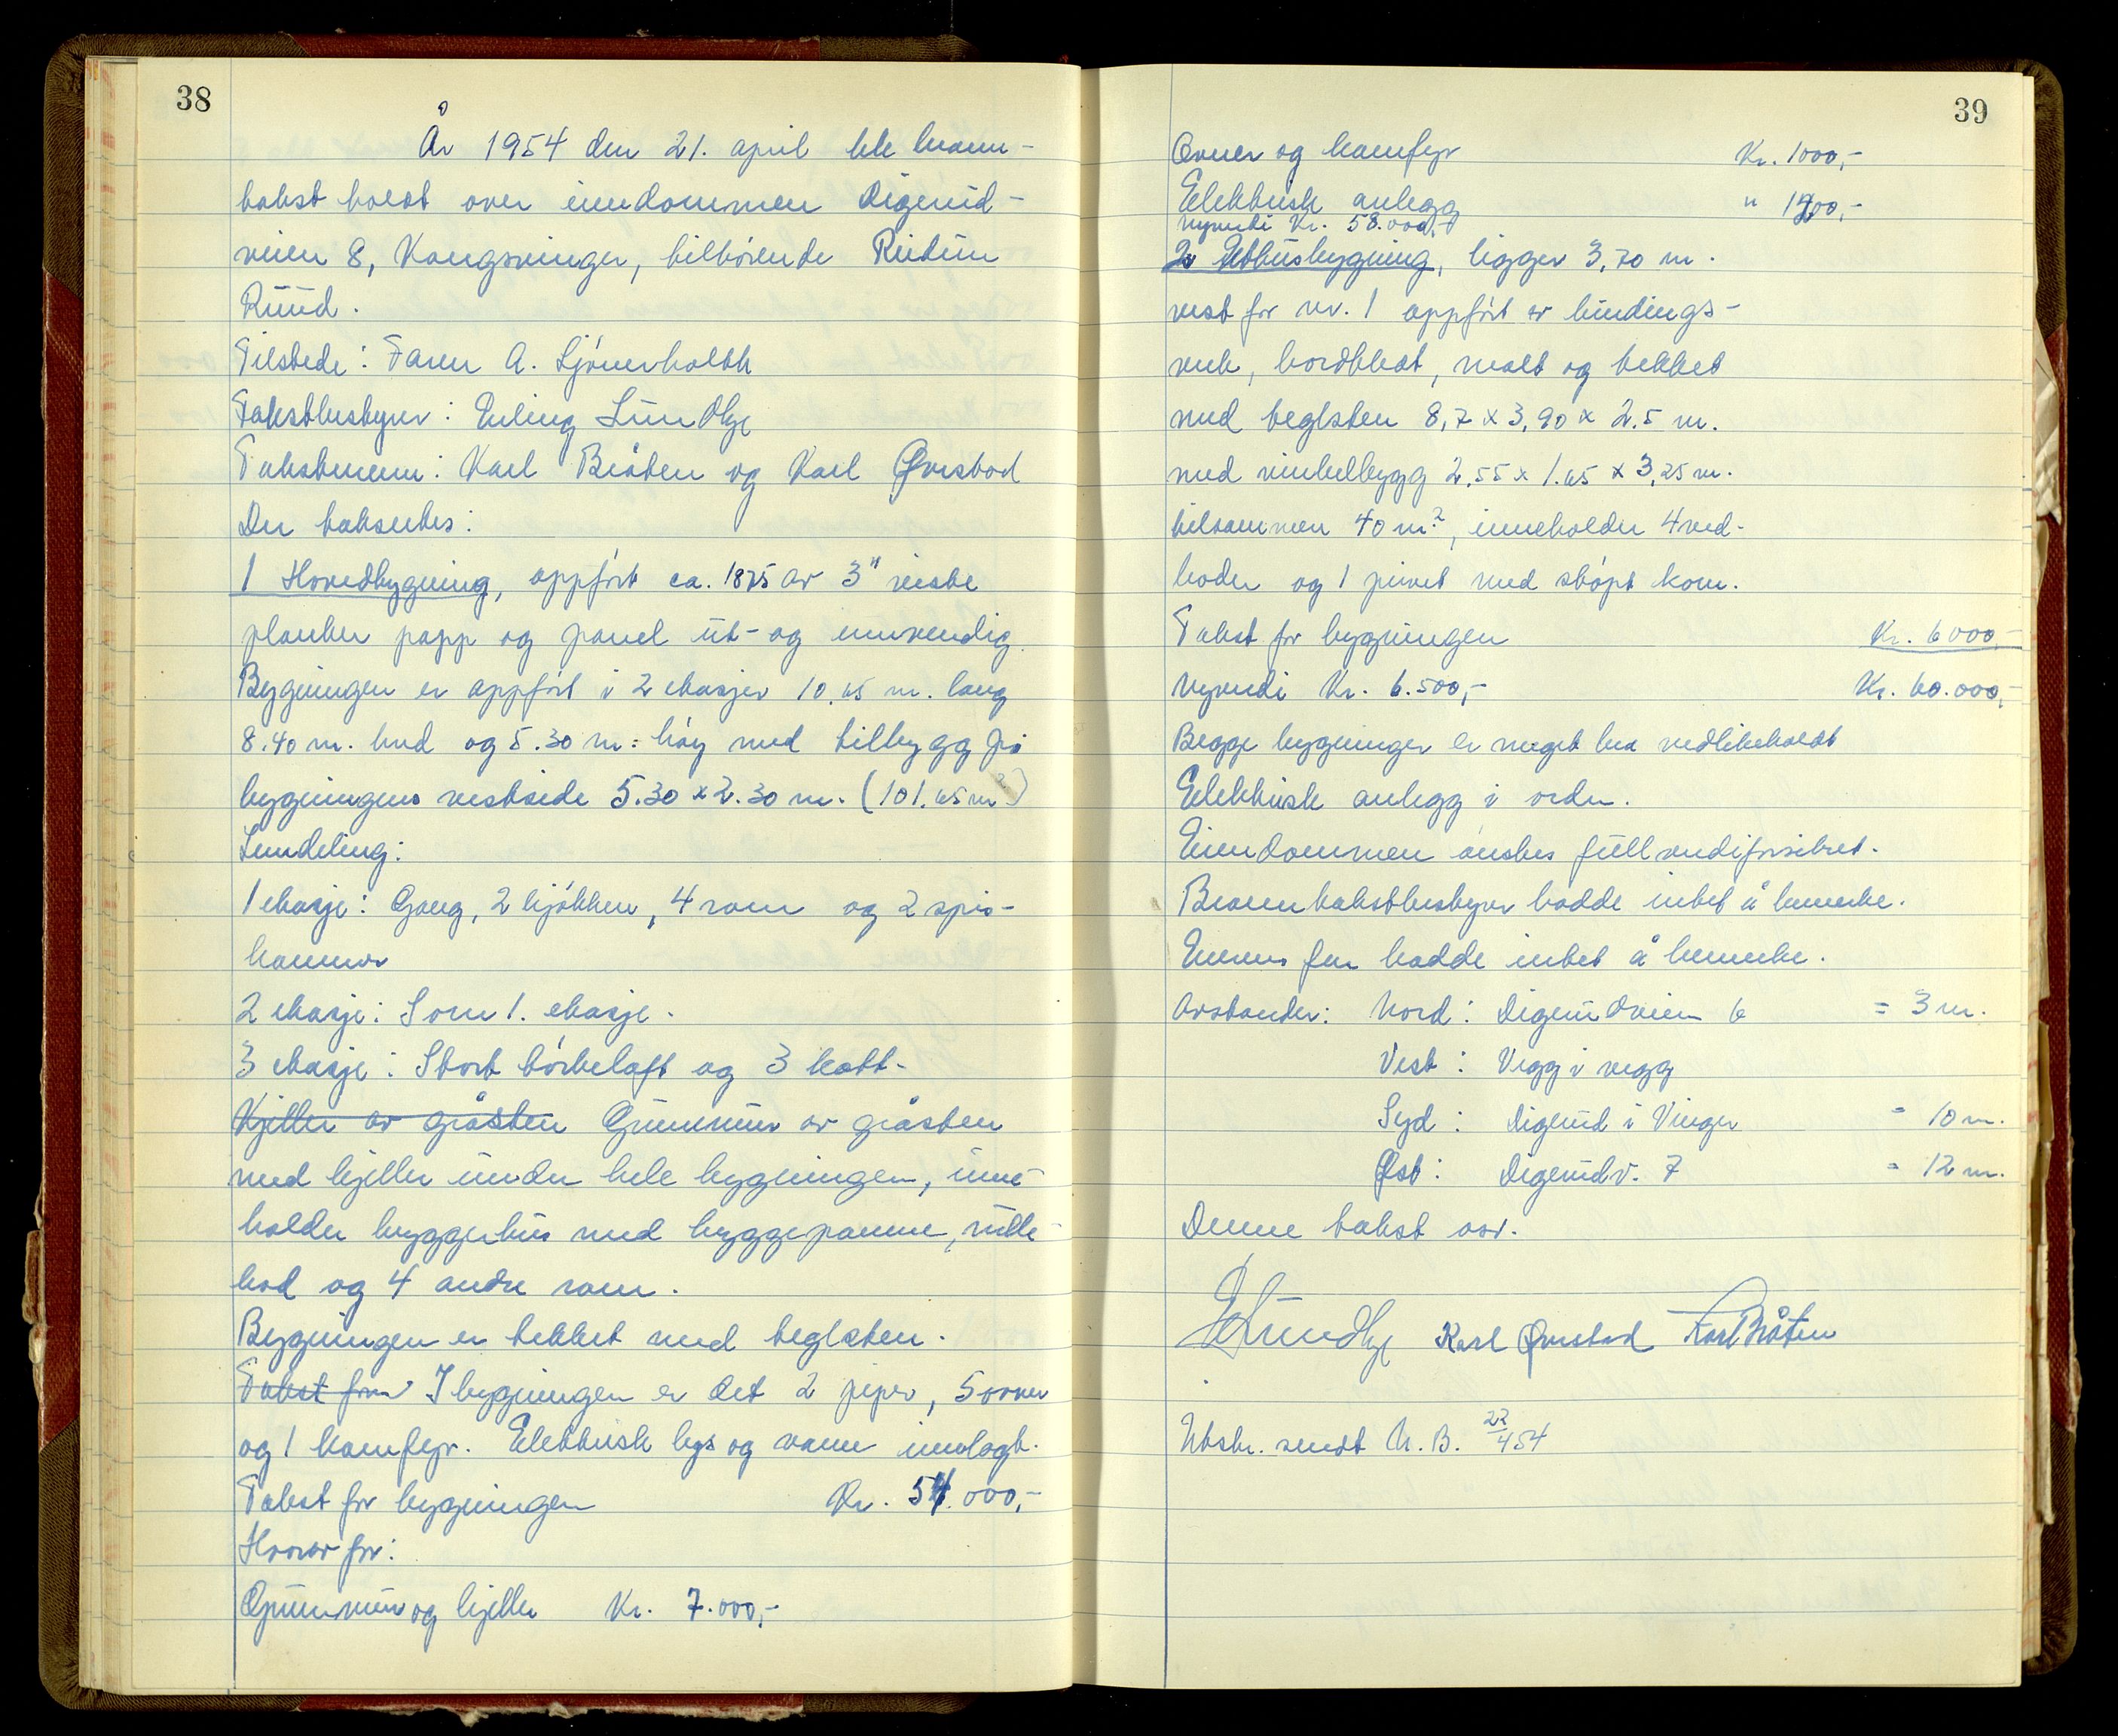 38
År 1954 den 21. april ble brann-
takst holdt over eiendommen Digerud-
veien 8, Kongsvinger, tilhørende Reidun
Ruud.
Tilstede: Faren A. Sjónerholtk
Takstbestyrer: Erling Lundby
Takstmenn: Karl Bråten og Karl Øvrebod
Der taksertes:
1 Hovedbygning, oppført ca. 1875 av 3" reiste
planker papp og panel ut- og innvendig.
Bygningen er oppført i 2 etasjer 10.65 m. lang
8.40 m. bred og 5.30 m. høy med tilbygg på
bygningens vestside 5.30 x 2.30 m. (101.65 m²)
Inndeling:
1 etasje: Gang, 2 kjøkken, 4 rom og 2 spis-
kammer
2 etasje: Som 1. etasje.
3 etasje: Stort tørkeloft og 3 kott.
Kjeller av gråsten Grunnmur av gråsten
med kjeller under hele bygningen, inne-
holder bryggerhus med bryggepanne, rulle-
bod og 4 andre rom.
Bygningen er tekket med teglsten.
Takst for I bygningen er det 2 piper, 5 ovner
og 1 komfyr. Elektrisk lys og vann innlagt.
Takst for bygningen Kr. 54.000,-
Hvorav for:
Grunnmur og kjeller Kr. 7.000,-
39
Ovner og komfyr Kr. 1000,-
Elektrisk anlegg " 1200,-
nyverdi Kr. 58.000,-
2 Uthusbygning, ligger 3,70 m.
vest for nr. 1 oppført av bindings-
verk, bordkledt, malt og tekket
med teglsten 8,7 x 3,90 x 2.5 m.
med vinkelbygg 2.55 x 1.65 x 3,25 m.
tilsammen 40 m², inneholder 4 ved-
boder og 1 privet med støpt kom.
Takst for bygningen Kr. 6000,-
Nyverdi Kr. 6.500,- Kr. 60.000,-
Begge bygninger er meget bra vedlikeholdt
Elektrisk anlegg i orden.
Eiendommen ønskes fullverdiforsikret.
Branntakstbestyrer hadde intet å bemerke.
Eierens far hadde intet å bemerke.
Avstander: Nord: Digerudveien 6 = 3 m.
Vest: Vegg i vegg
Syd: Digerud i Vinger = 10 m.
Øst: Digerudv. 7 = 12 m.
Denne takst avr.
E Lundby Karl Øvrebod Karl Bråten
Utskr. sendt N.B. 22/4 54